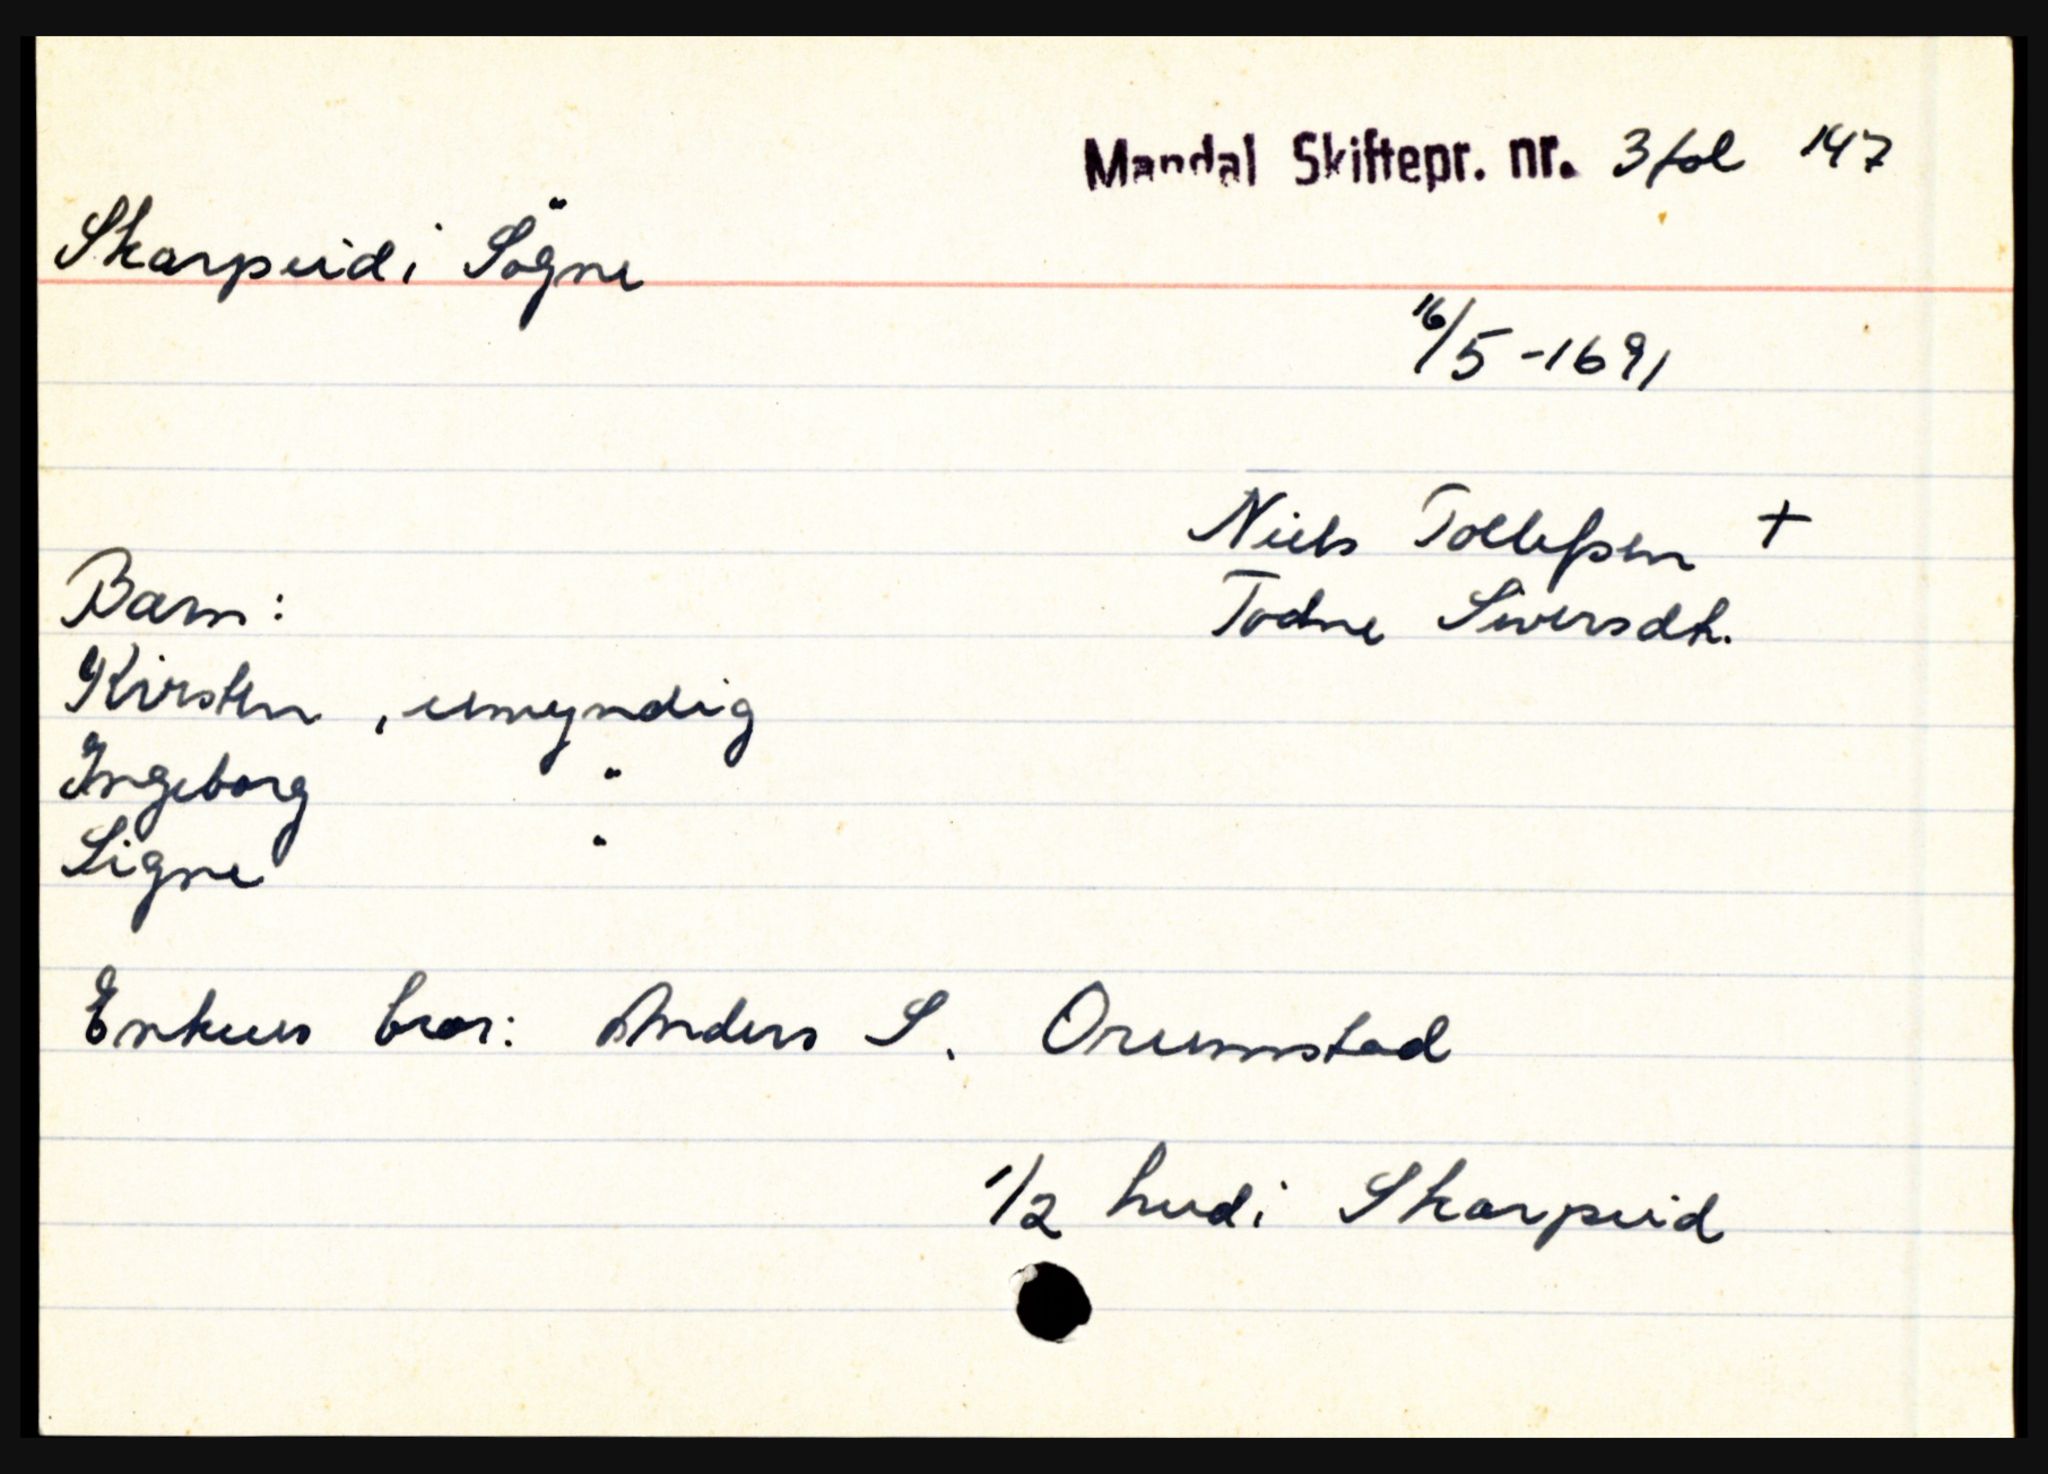 Mandal Skiftepr. nr. 3 fol 147
Skarpeid i Sögne
16/5-1691
Niels Tollefsen +
Todne Siversdt.
Barn:
Kirsten , umyndig
Ingeborg "
Signe "
Enkens bror: Anders S. Orumstad
1/2 hud i Skarpeid